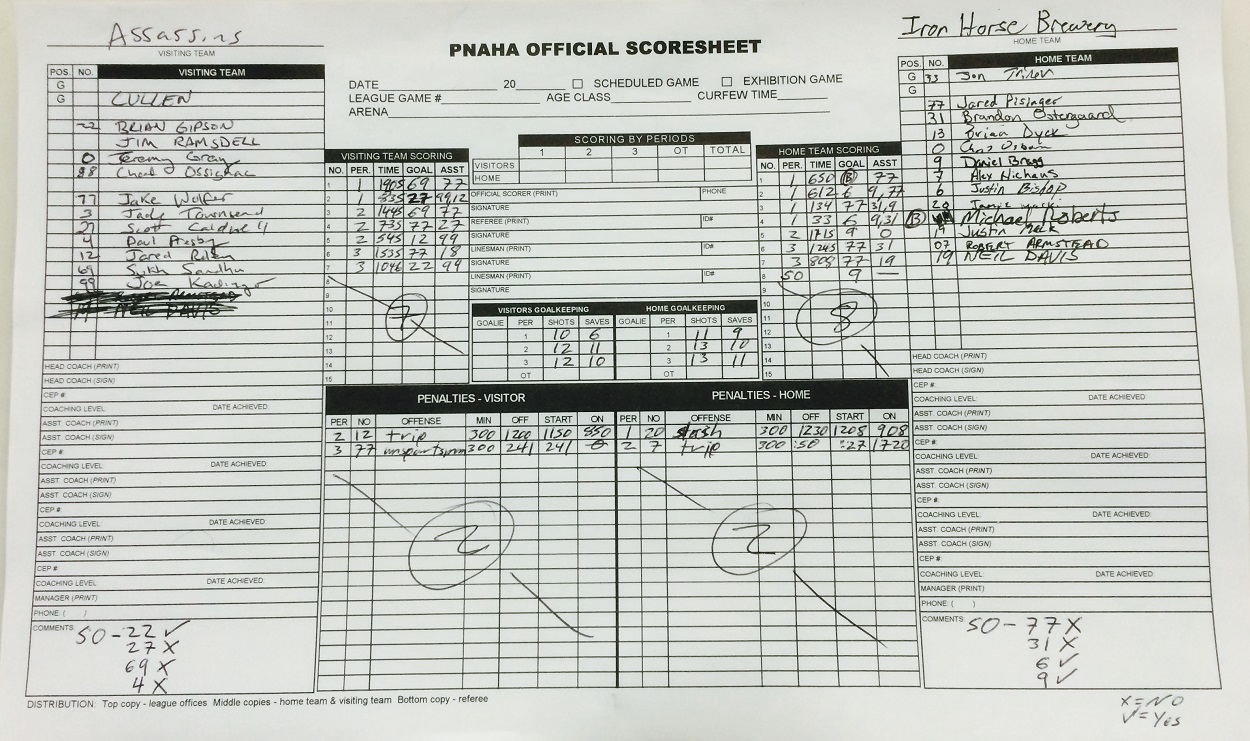 Assassins
VISITING TEAM
Iron Horse Brewery
HOME TEAM
PNAHA OFFICIAL SCORESHEET
DATE 20 SCHEDULED GAME EXHIBITION GAME
LEAGUE GAME # AGE CLASS CURFEW TIME
ARENA
POS. NO. VISITING TEAM
G
G CULLEN
22 BRIAN GIPSON
JIM RAMSDELL
0 Jeremy Gray
98 Chad Ossignac
77 Jake Wolfer
3 Jade Townsend
27 Scott Caldwell
4 Paul Presby
12 Jared Riley
69 Sukh Sandhu
99 Joe
HEAD COACH (PRINT)
HEAD COACH (SIGN)
CEP #:
COACHING LEVEL DATE ACHIEVED:
ASST. COACH (PRINT)
ASST. COACH (SIGN)
CEP #:
COACHING LEVEL DATE ACHIEVED:
ASST. COACH (PRINT)
ASST. COACH (SIGN)
CEP #:
COACHING LEVEL DATE ACHIEVED:
ASST. COACH (PRINT)
ASST. COACH (SIGN)
CEP #:
COACHING LEVEL DATE ACHIEVED:
MANAGER (PRINT)
PHONE ( )
COMMENTS: 50-22 ✓
27 X
69 X
4 X
VISITING TEAM SCORING
NO. PER. TIME GOAL ASST
1 1 1905 69 77
2 1 835 27 99,12
3 2 1445 69 77
4 2 735 77 27
5 2 545 12 99
6 3 1535 77 18
7 3 1046 22 99
8
9
10
11
12
13
14
15
7
SCORING BY PERIODS
1 2 3 OT TOTAL
VISITORS
HOME
OFFICIAL SCORER (PRINT) PHONE
SIGNATURE
REFEREE (PRINT) ID#
SIGNATURE
LINESMAN (PRINT) ID#
SIGNATURE
LINESMAN (PRINT) ID#
SIGNATURE
VISITORS GOALKEEPING HOME GOALKEEPING
GOALIE PER SHOTS SAVES GOALIE PER SHOTS SAVES
1 10 6 1 11 9
2 12 11 2 13 10
3 12 10 3 13 11
OT OT
HOME TEAM SCORING
NO. PER. TIME GOAL ASST
1 1 650 B 77
2 1 612 6 9,77
3 1 134 77 31,9
4 1 33 6 9,31
5 2 1715 9 0
6 3 1245 77 31
7 3 808 77 19
8 50 9 —
9
10
11
12
13
14
15
8
POS. NO. HOME TEAM
G 33 Jon
G
77 Jared Pisinger
31 Brandon Ostergaard
13 Brian Dyck
0 Chris Osborn
9 Daniel Bragg
7 Alex Niehaus
6 Justin Bishop
20 Jamie
B Michael Roberts
19 Justin Meek
07 ROBERT ARMSTEAD
19 NEIL DAVIS
HEAD COACH (PRINT)
HEAD COACH (SIGN)
CEP #:
COACHING LEVEL DATE ACHIEVED:
ASST. COACH (PRINT)
ASST. COACH (SIGN)
CEP #:
COACHING LEVEL: DATE ACHIEVED:
ASST. COACH (PRINT)
ASST. COACH (SIGN)
CEP #:
COACHING LEVEL: DATE ACHIEVED:
ASST. COACH (PRINT)
ASST. COACH (SIGN)
CEP #:
COACHING LEVEL: DATE ACHIEVED:
MANAGER (PRINT)
PHONE: ( )
COMMENTS: 50-77 X
31 X
6 ✓
9 ✓
PENALTIES - VISITOR PENALTIES - HOME
PER NO OFFENSE MIN OFF START ON PER NO OFFENSE MIN OFF START ON
2 12 trip 300 1200 1150 850 1 20 slash 300 1230 1208 908
3 77 unsportsmn 300 241 241 0 2 7 trip 300 :50 :27 1720
2 2
DISTRIBUTION: Top copy - league offices Middle copies - home team & visiting team Bottom copy - referee
X=NO
✓=Yes